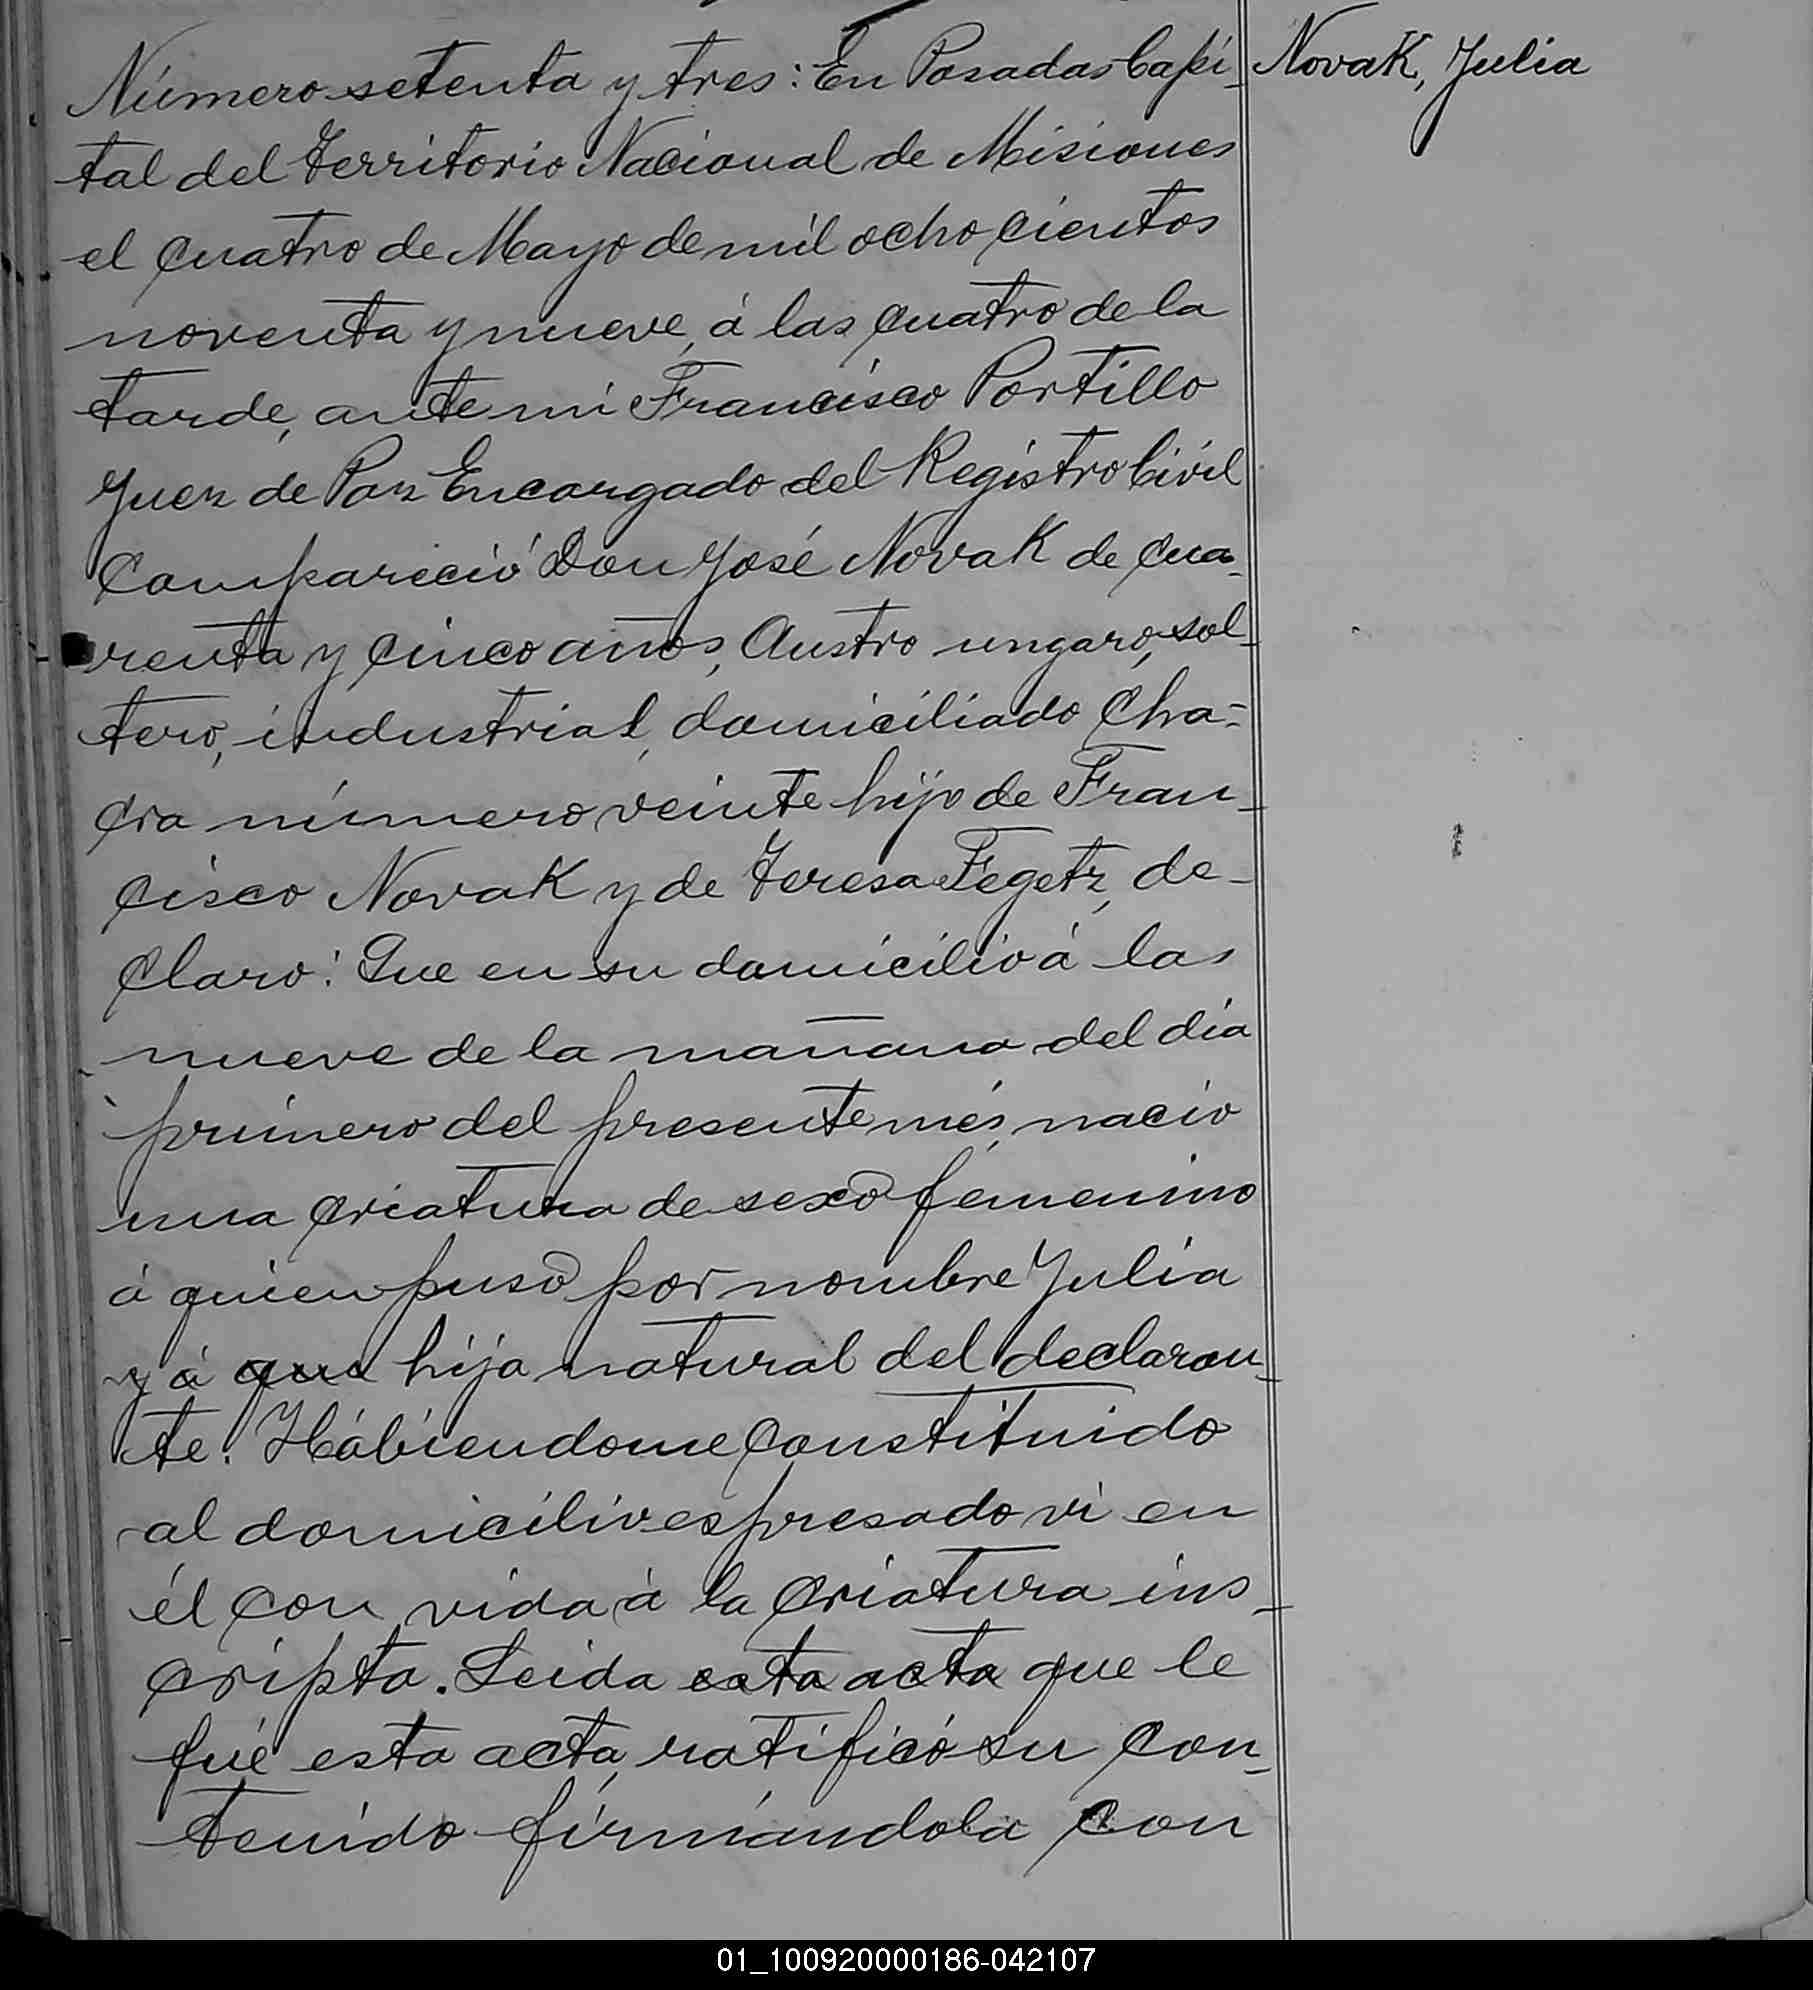 Número setenta y tres: En Posadas Capi-
tal del Territorio Nacional de Misiones
el cuatro de Mayo de mil ochocientos
noventa y nueve, á las cuatro de la
tarde, ante mi Francisco Portillo
Juez de Paz Encargado del Registro Civil
Comparició Don José Novak de cua-
renta y cinco años, Austro ungaro, sol-
tero, industrial, domiciliado Cha-
cra número veinte hijo de Fran-
cisco Novak y de Teresa Fegetz, de-
claro: Que en su domicilio á las
nueve de la mañana del día
primero del presente més, nacio
una criatura de sexo femenino
á quien puso por nombre Julia
y á que hija natural del declaran-
te. Habiendome constituido
al domicilio espresado vi en
él con vida á la criatura ins-
cripta. Leida esta acta que le
fué esta acta, ratificó su con-
tenido firmándola con
Novak, Julia
01_100920000186-042107